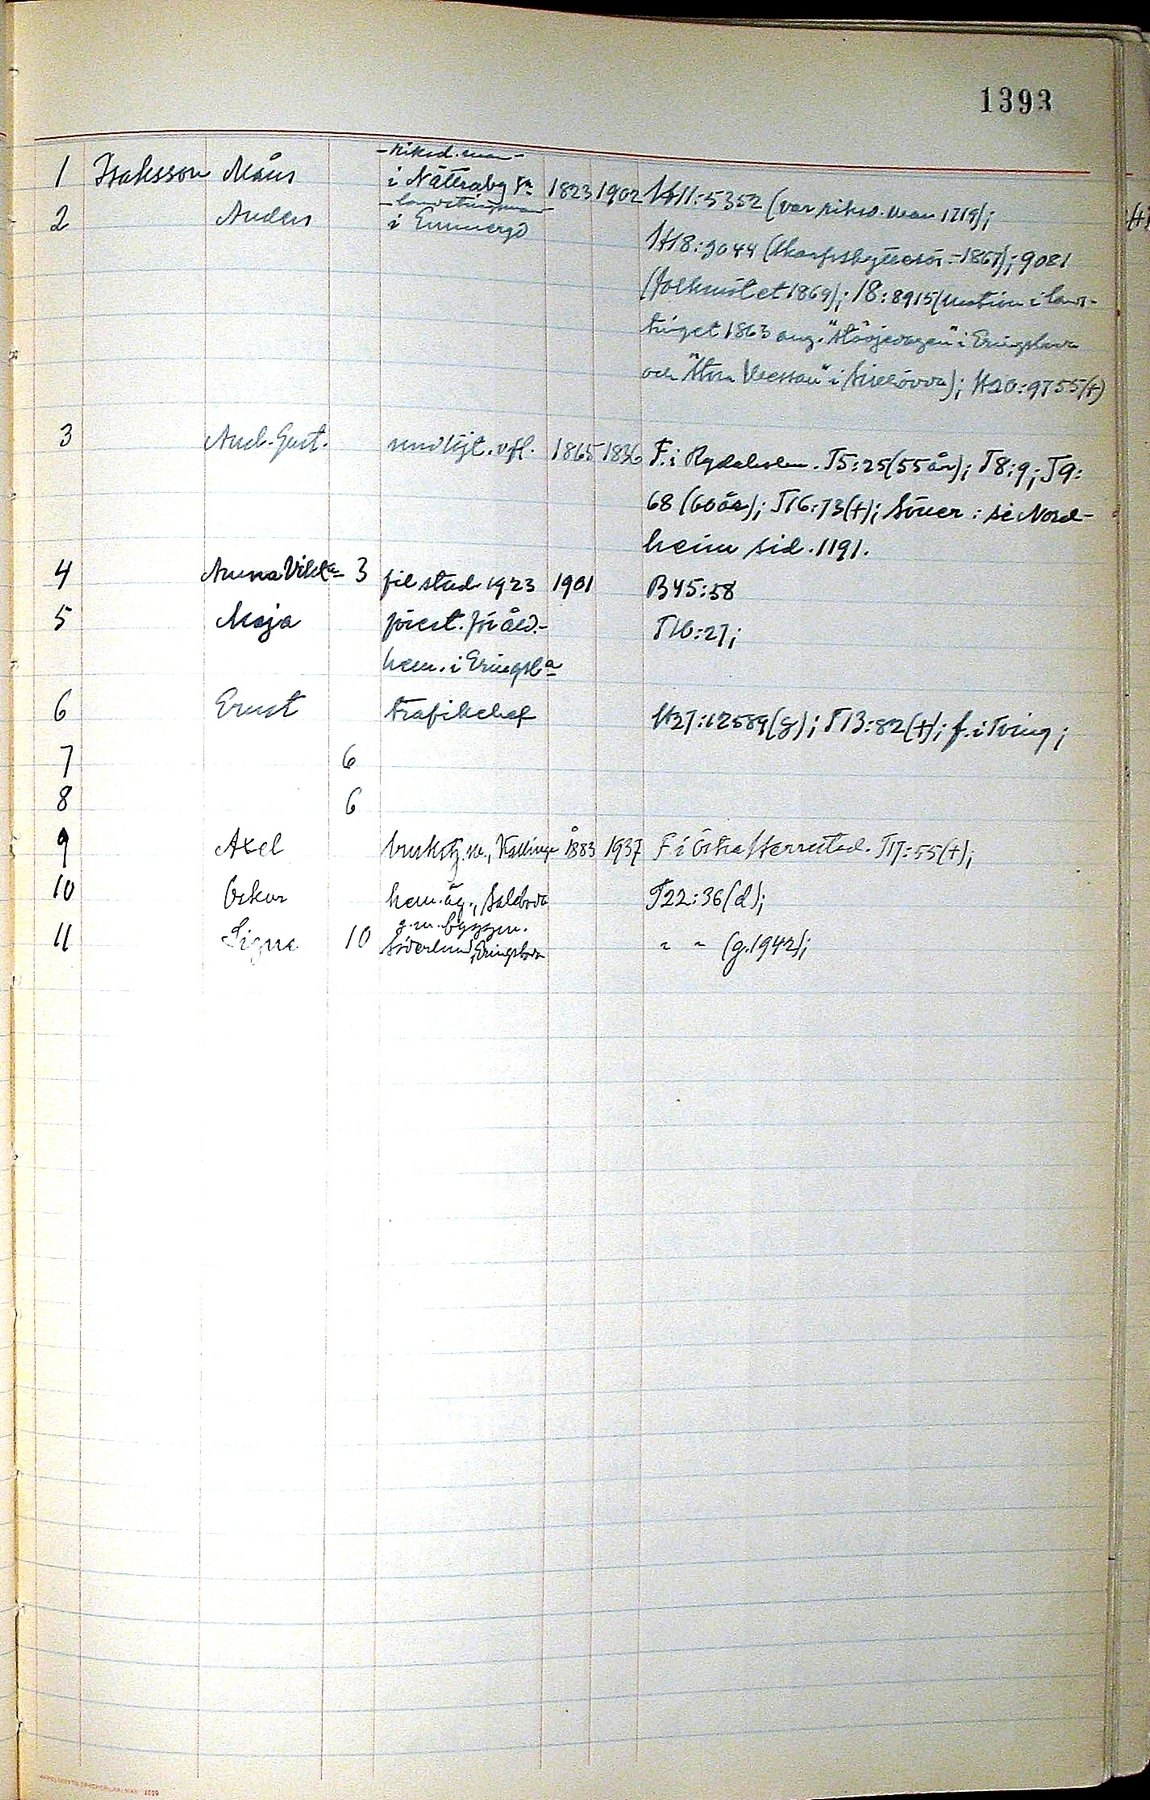 1393
riksd.man
1 Isaksson Måns i Nättraby sn 1823 1902 H11:5352 (var riksd.man 1719);
landstingsman
2 Anders i Emmeryd H18:9044 (Skarpskytteför. -1867); 9081
(Folkmötet 1869); 18:8915 (motion i lands-
tinget 1863 ang. i Eringsboda
och "Stora i ); H20:9755(+)
3 And. Gust. 1865 1836 F. i Rydaholm. T5:25(55 år); T8:9; T9:
68 (60 år); T16:73(+); Söner: se Nord-
heim sid. 1191.
4 Anna Vikt:a 3 fil stud 1923 1901 B45:58
5 Maja förest. för åld.- T16:27;
hem. i Eringsb:a
6 Ernst trafikchef H27:12589(g); T13:82(+); f. i Tving;
7 6
8 6
9 Axel Kallinge 1883 1937 F i Östra Herrestad. T17:55(+);
10 Oskar hem.äg., Saleboda T22:36(d);
g.m. byggm.
11 Signe 10 Söderlund, Eringsboda " " (g.1942);